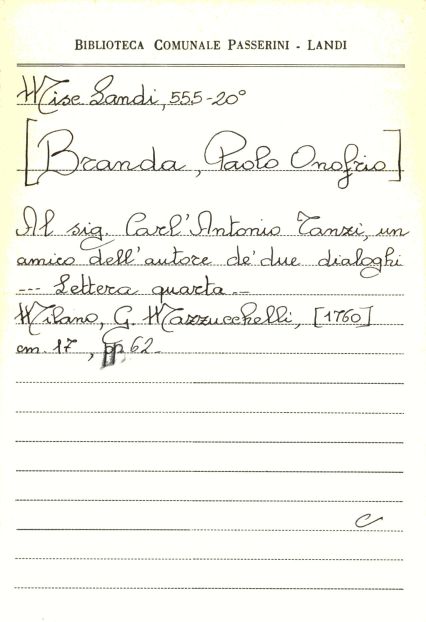 BIBLIOTECA COMUNALE PASSERINI - LANDI
Misc Landi, 555-20°
[Branda, Paolo Onofrio]
Al sig. Carl'Antonio Tanzi, un
amico dell'autore de' due dialoghi
--- Lettera quarta --
Milano, G. Mazzucchelli, [1760]
cm. 17, pp. 62-
C